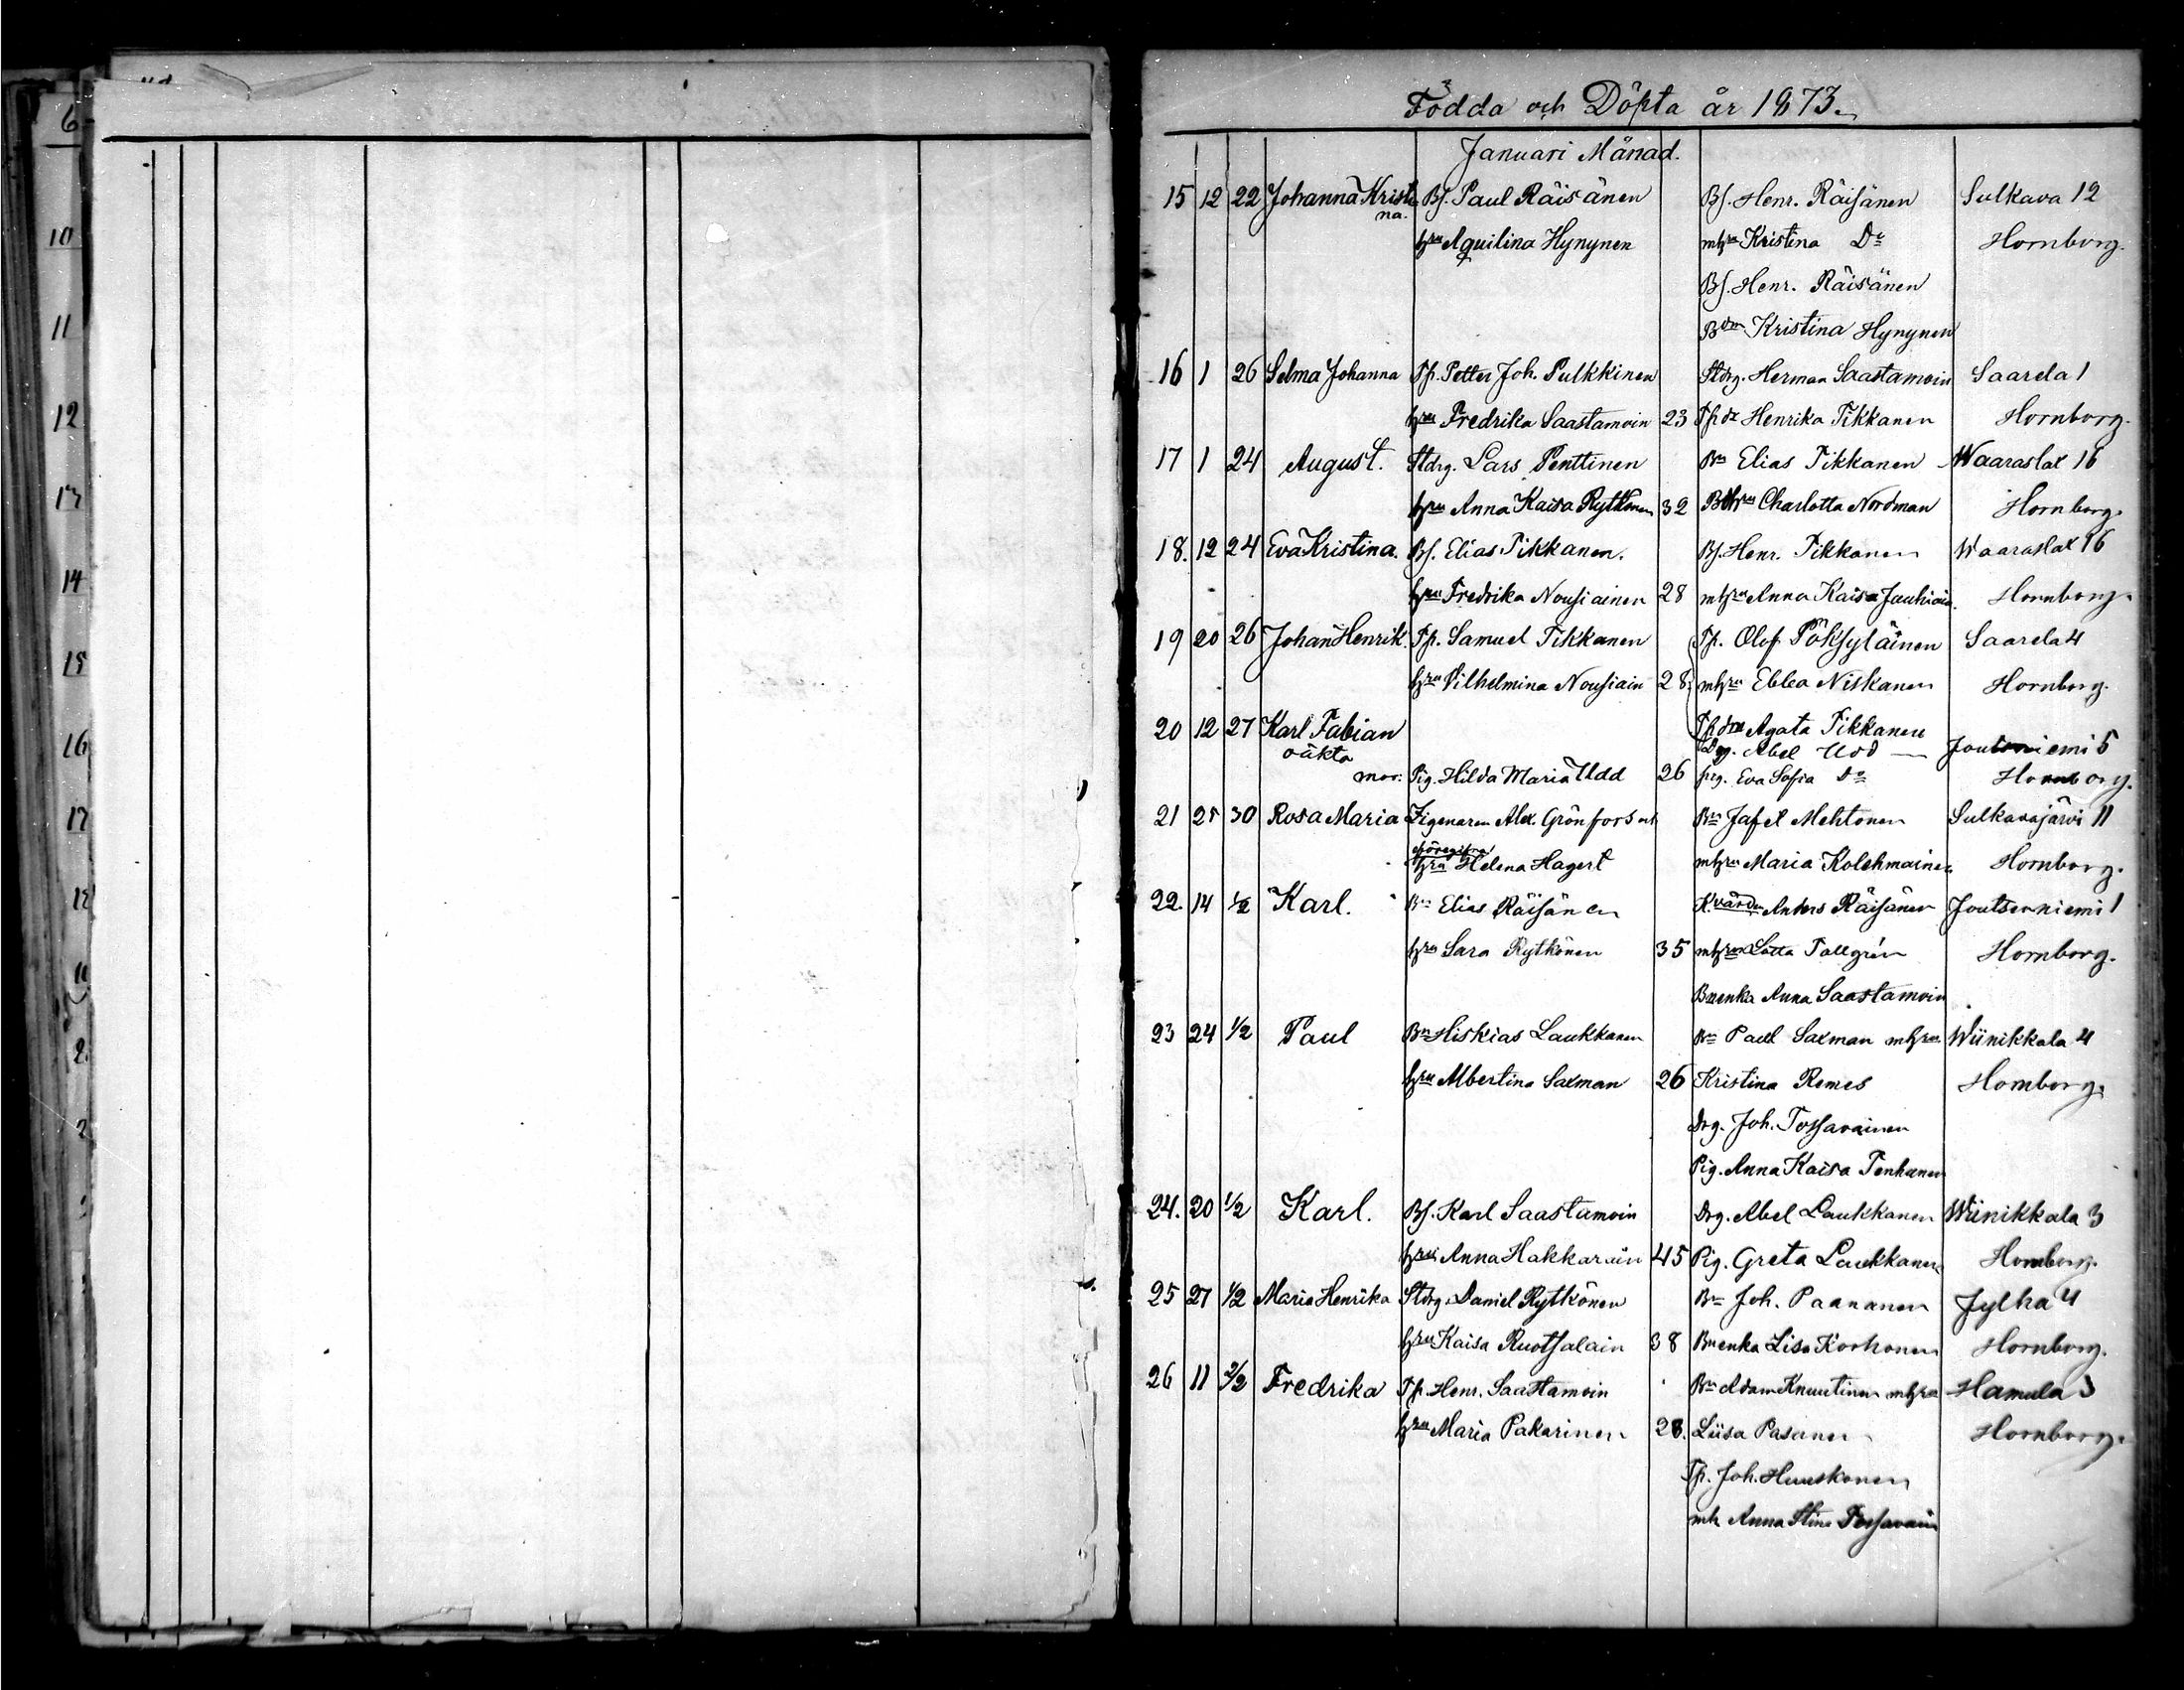 6
10
11
12
13
14
15
16
17
Födda och Döpta år 1873.
Januari Månad.
15 12 22 Johanna Kristi Bf. Paul Räisänen Bf. Henr. Räisänen Sulkava 12
na. hru Aquilina Hynynen mhru Kristina Do Hornborg.
Bf. Henr. Räisänen
Kristina Hynynen
16 1 26 Selma Johanna Tp. Petter Joh. Pulkkinen Stdrg. Herman Saastamoin Saarela 1
hru Fredrika Saastamoin 23 Tpdr Henrika Tikkanen Hornborg.
17 1 24 August. Stdrg. Lars Penttinen Bn Elias Tikkanen Waaraslax 16
hru Anna Kaisa Rytkönen 32 Charlotta Nordman Hornborg.
18. 12 24 Eva Kristina. Bf. Elias Tikkanen. Bf. Henr. Tikkanen Waaraslax 16
hru Fredrika Nousiainen 28 mhru Anna Kaisa Jauhiain. Hornborg.
19 20 26 Johan Henrik. Tp. Samuel Tikkanen Tp. Olof Pöksyläinen Saarela 4
hru Vilhelmina Nousiain 28. mhru Ebba Niskanen Hornborg.
20 12 27 Karl Fabian Agata Tikkanen
oäkta Drg. Abel Udd Joutseniemi 5
mor: Pig. Hilda Maria Udd 26 pig. Eva Sofia Do Hornborg.
21 25 30 Rosa Maria Zigenaren Alex. Grönfors och Bn Jafet Mehtonen Sulkavajärvi 11
hru Helena Hagert mhru Maria Kolehmainen Hornborg.
22. 14 1/2 Karl. Bn Elias Räisänen K.värden Anders Räisänen Joutsenniemi 1
hru Sara Rytkönen 35 mhru Lotta Tallgrén Hornborg.
Bnenka Anna Saastamoin
23 24 1/2 Paul Bn Hiskias Laukkanen Bn Paul Saxman mhru Wiinikkala 4
hru Albertina Saxman 26 Kristina Remes Hornborg.
Drg. Joh. Tossavainen
Pig. Anna Kaisa Tenhunen
24. 20 1/2 Karl. Bf. Karl Saastamoin Drg. Abel Laukkanen Wiinikkala 3
hru Anna Hakkarain 45 Pig. Greta Laukkanen Hornborg.
25 27 1/2 Maria Henrika Stdrg. Daniel Rytkönen Bn Joh. Paananen Jylhä 4
hru Kaisa Ruotsalain 38 Bnenka Lisa Korhonen Hornborg.
26 11 2/2 Fredrika Tp. Henr. Saastamoin Bn Adam Knuutinen mhru Hamula 3
hru Maria Pakarinen 28. Liisa Pasanen Hornborg.
Tp. Joh. Huuskonen
mh Anna Stina Tossavain